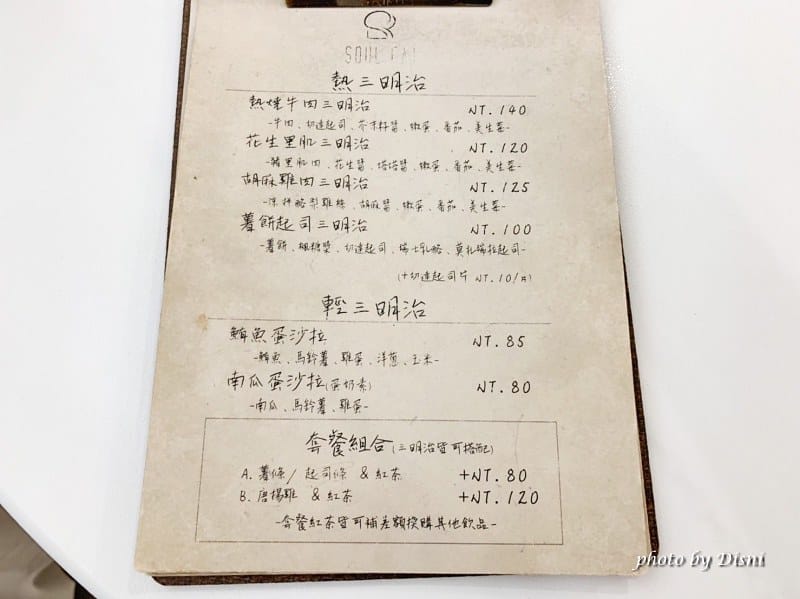 SOUL EAT
熱三明治
熱燒牛肉三明治 NT. 140
-牛肉、切達起司、芥末籽醬、嫩蛋、番茄、美生菜-
花生里肌三明治 NT. 120
-豬里肌肉、花生醬、塔塔醬、嫩蛋、番茄、美生菜-
胡麻雞肉三明治 NT. 125
-涼拌酪梨雞絲、胡麻醬、嫩蛋、番茄、美生菜-
薯餅起司三明治 NT. 100
-薯餅、楓糖漿、切達起司、瑞士乳酪、莫札瑞拉起司-
(+切達起司片 NT. 10/片)
輕三明治
鮪魚蛋沙拉 NT. 85
-鮪魚、馬鈴薯、雞蛋、洋蔥、玉米-
南瓜蛋沙拉(蛋奶素) NT. 80
-南瓜、馬鈴薯、雞蛋-
套餐組合(三明治皆可搭配)
A. 薯條/起司條 & 紅茶 +NT. 80
B. 唐楊雞 & 紅茶 +NT. 120
-套餐紅茶皆可補差額換購其他飲品-
photo by Disni